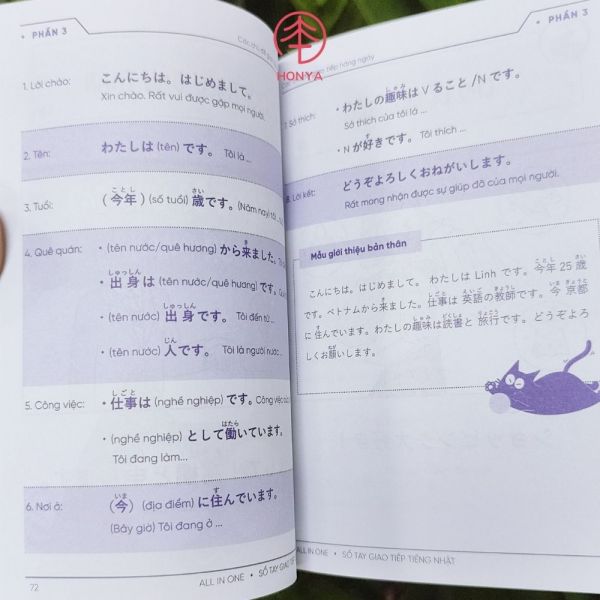 PHẦN 3
Các chủ đề
1. Lời chào:
こんにちは。はじめまして。
Xin chào. Rất vui được gặp mọi người.
2. Tên:
わたしは (tên) です。 Tôi là ...
3. Tuổi:
(今年) (số tuổi) 歳です。 (Năm nay) tôi ...
4. Quê quán:
• (tên nước/quê hương) から来ました。
• 出身は (tên nước/quê hương) です。
• (tên nước) 出身です。 Tôi đến từ ...
• (tên nước) 人です。 Tôi là người nước ...
5. Công việc:
• 仕事は (nghề nghiệp) です。 Công việc của
• (nghề nghiệp) として働いています。
Tôi đang làm...
6. Nơi ở:
(今) (địa điểm) に住んでいます。
(Bây giờ) Tôi đang ở ...
72
ALL IN ONE • SỔ TAY GIAO TIẾP
HONYA
tiếp hàng ngày
PHẦN 3
Sở thích:
• わたしの趣味は V ること /N です。
Sở thích của tôi là ...
• N が好きです。 Tôi thích ...
8. Lời kết:
どうぞよろしくおねがいします。
Rất mang nhận được sự giúp đỡ của mọi người.
Mẫu giới thiệu bản thân
こんにちは。はじめまして。 わたしは Linh です。今年 25 歳
です。ベトナムから来ました。仕事は 英語の教師です。今 京都
に 住んでいます。わたしの趣味は読書と 旅行です。どうぞよろ
しくお願いします。
ALL IN ONE • SỔ TAY GIAO TIẾP TIẾNG NHẬT